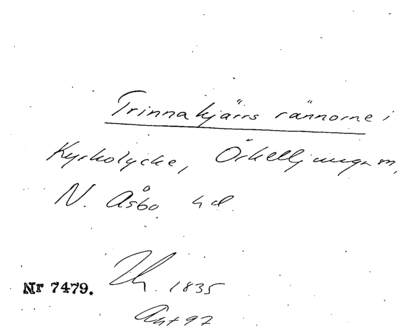 Trinnakjärrs rännorne i
Kyrkolycke, Örkelljunga sn,
N. Åsbo hd.
Nr 7479. 1835
Akt 97